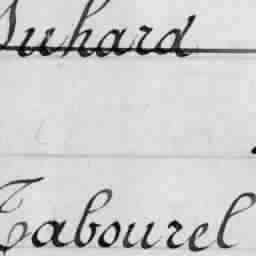 Suhard
Tabourel